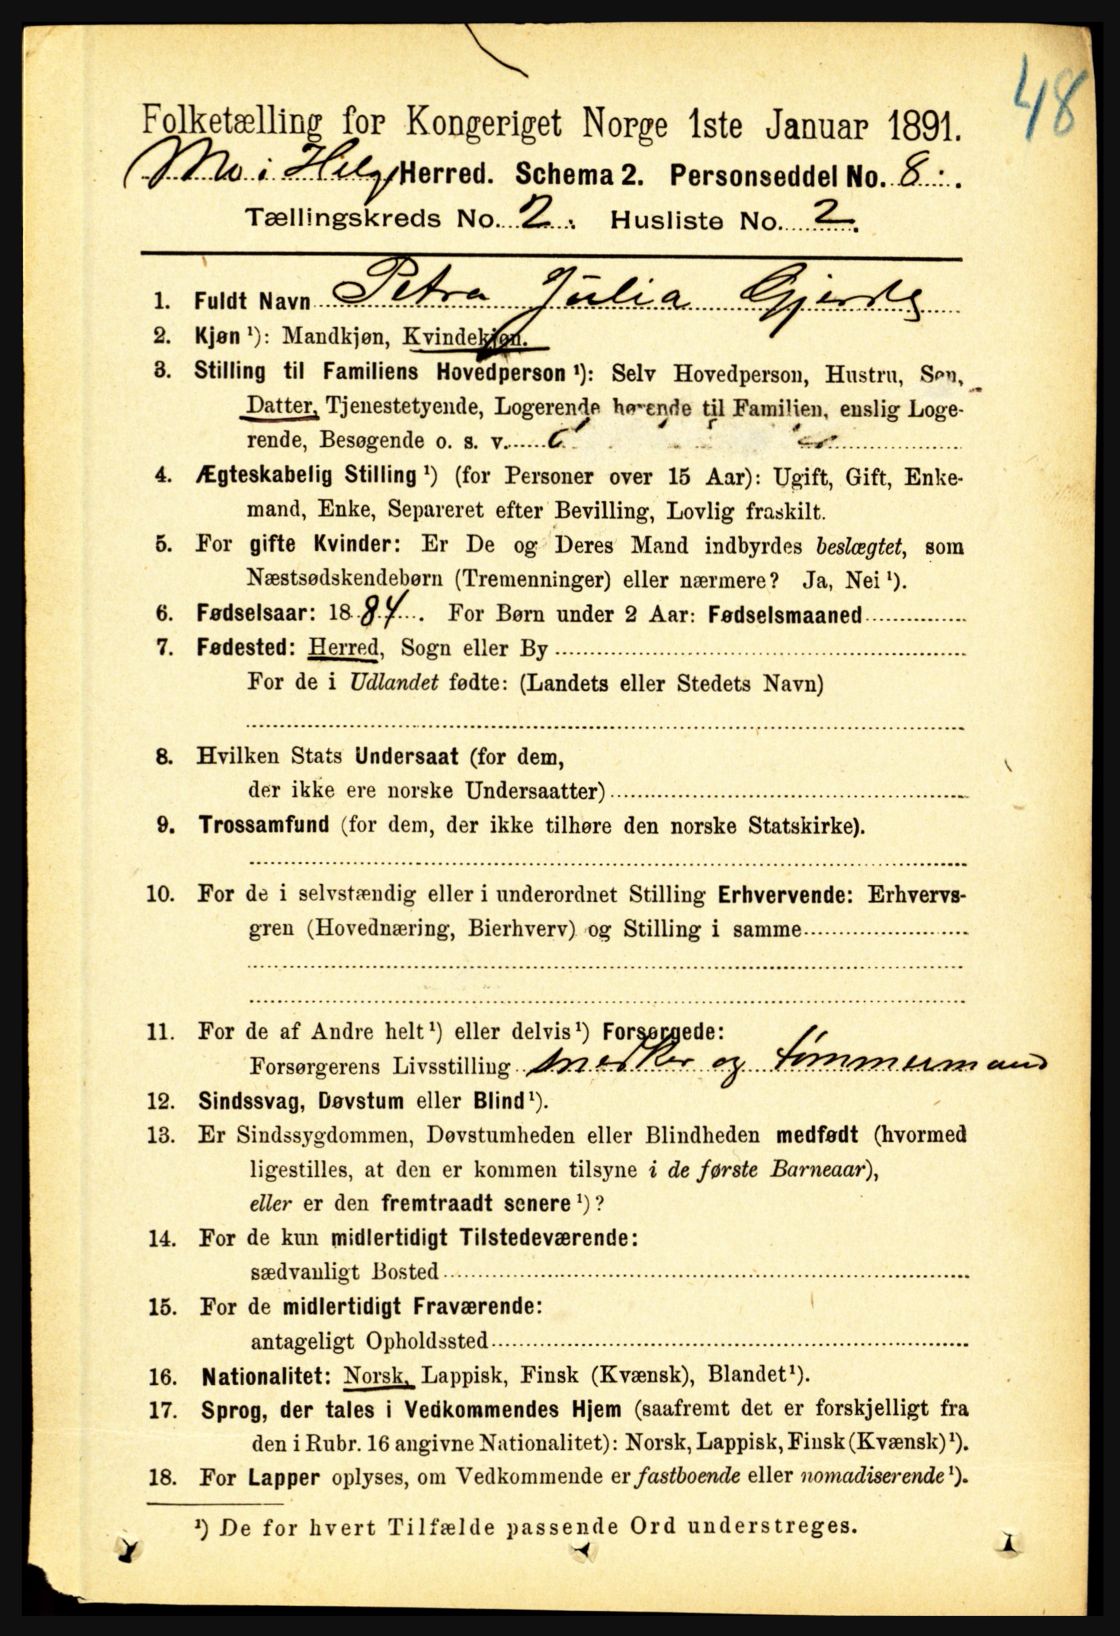 48
Folketælling for Kongeriget Norge 1ste Januar 1891.
Mo i Helg Herred. Schema 2. Personseddel No. 8.
Tællingskreds No. 2. Husliste No. 2.
1. Fuldt Navn Petra Julia Gjerde
2. Kjøn ¹): Mandkjøn, Kvindekjøn.
3. Stilling til Familiens Hovedperson ¹): Selv Hovedperson, Hustru, Søn,
Datter, Tjenestetyende, Logerende hørende til Familien, enslig Loge-
rende, Besøgende o. s. v.
4. Ægteskabelig Stilling ¹) (for Personer over 15 Aar): Ugift, Gift, Enke-
mand, Enke, Separeret efter Bevilling, Lovlig fraskilt.
5. For gifte Kvinder: Er De og Deres Mand indbyrdes beslægtet, som
Næstsødskendebørn (Tremenninger) eller nærmere? Ja, Nei ¹).
6. Fødselsaar: 1884. For Børn under 2 Aar: Fødselsmaaned
7. Fødested: Herred, Sogn eller By
For de i Udlandet fødte: (Landets eller Stedets Navn)
8. Hvilken Stats Undersaat (for dem,
der ikke ere norske Undersaatter)
9. Trossamfund (for dem, der ikke tilhøre den norske Statskirke).
10. For de i selvstændig eller i underordnet Stilling Erhvervende: Erhvervs-
gren (Hovednæring, Bierhverv) og Stilling i samme
11. For de af Andre helt ¹) eller delvis ¹) Forsørgede:
Forsørgerens Livsstilling snedker og tømmermand
12. Sindssvag, Døvstum eller Blind ¹).
13. Er Sindssygdommen, Døvstumheden eller Blindheden medfødt (hvormed
ligestilles, at den er kommen tilsyne i de første Barneaar),
eller er den fremtraadt senere ¹)?
14. For de kun midlertidigt Tilstedeværende:
sædvanligt Bosted
15. For de midlertidigt Fraværende:
antageligt Opholdssted
16. Nationalitet: Norsk, Lappisk, Finsk (Kvænsk), Blandet ¹).
17. Sprog, der tales i Vedkommendes Hjem (saafremt det er forskjelligt fra
den i Rubr. 16 angivne Nationalitet): Norsk, Lappisk, Finsk (Kvænsk) ¹).
18. For Lapper oplyses, om Vedkommende er fastboende eller nomadiserende ¹).
¹) De for hvert Tilfælde passende Ord understreges.